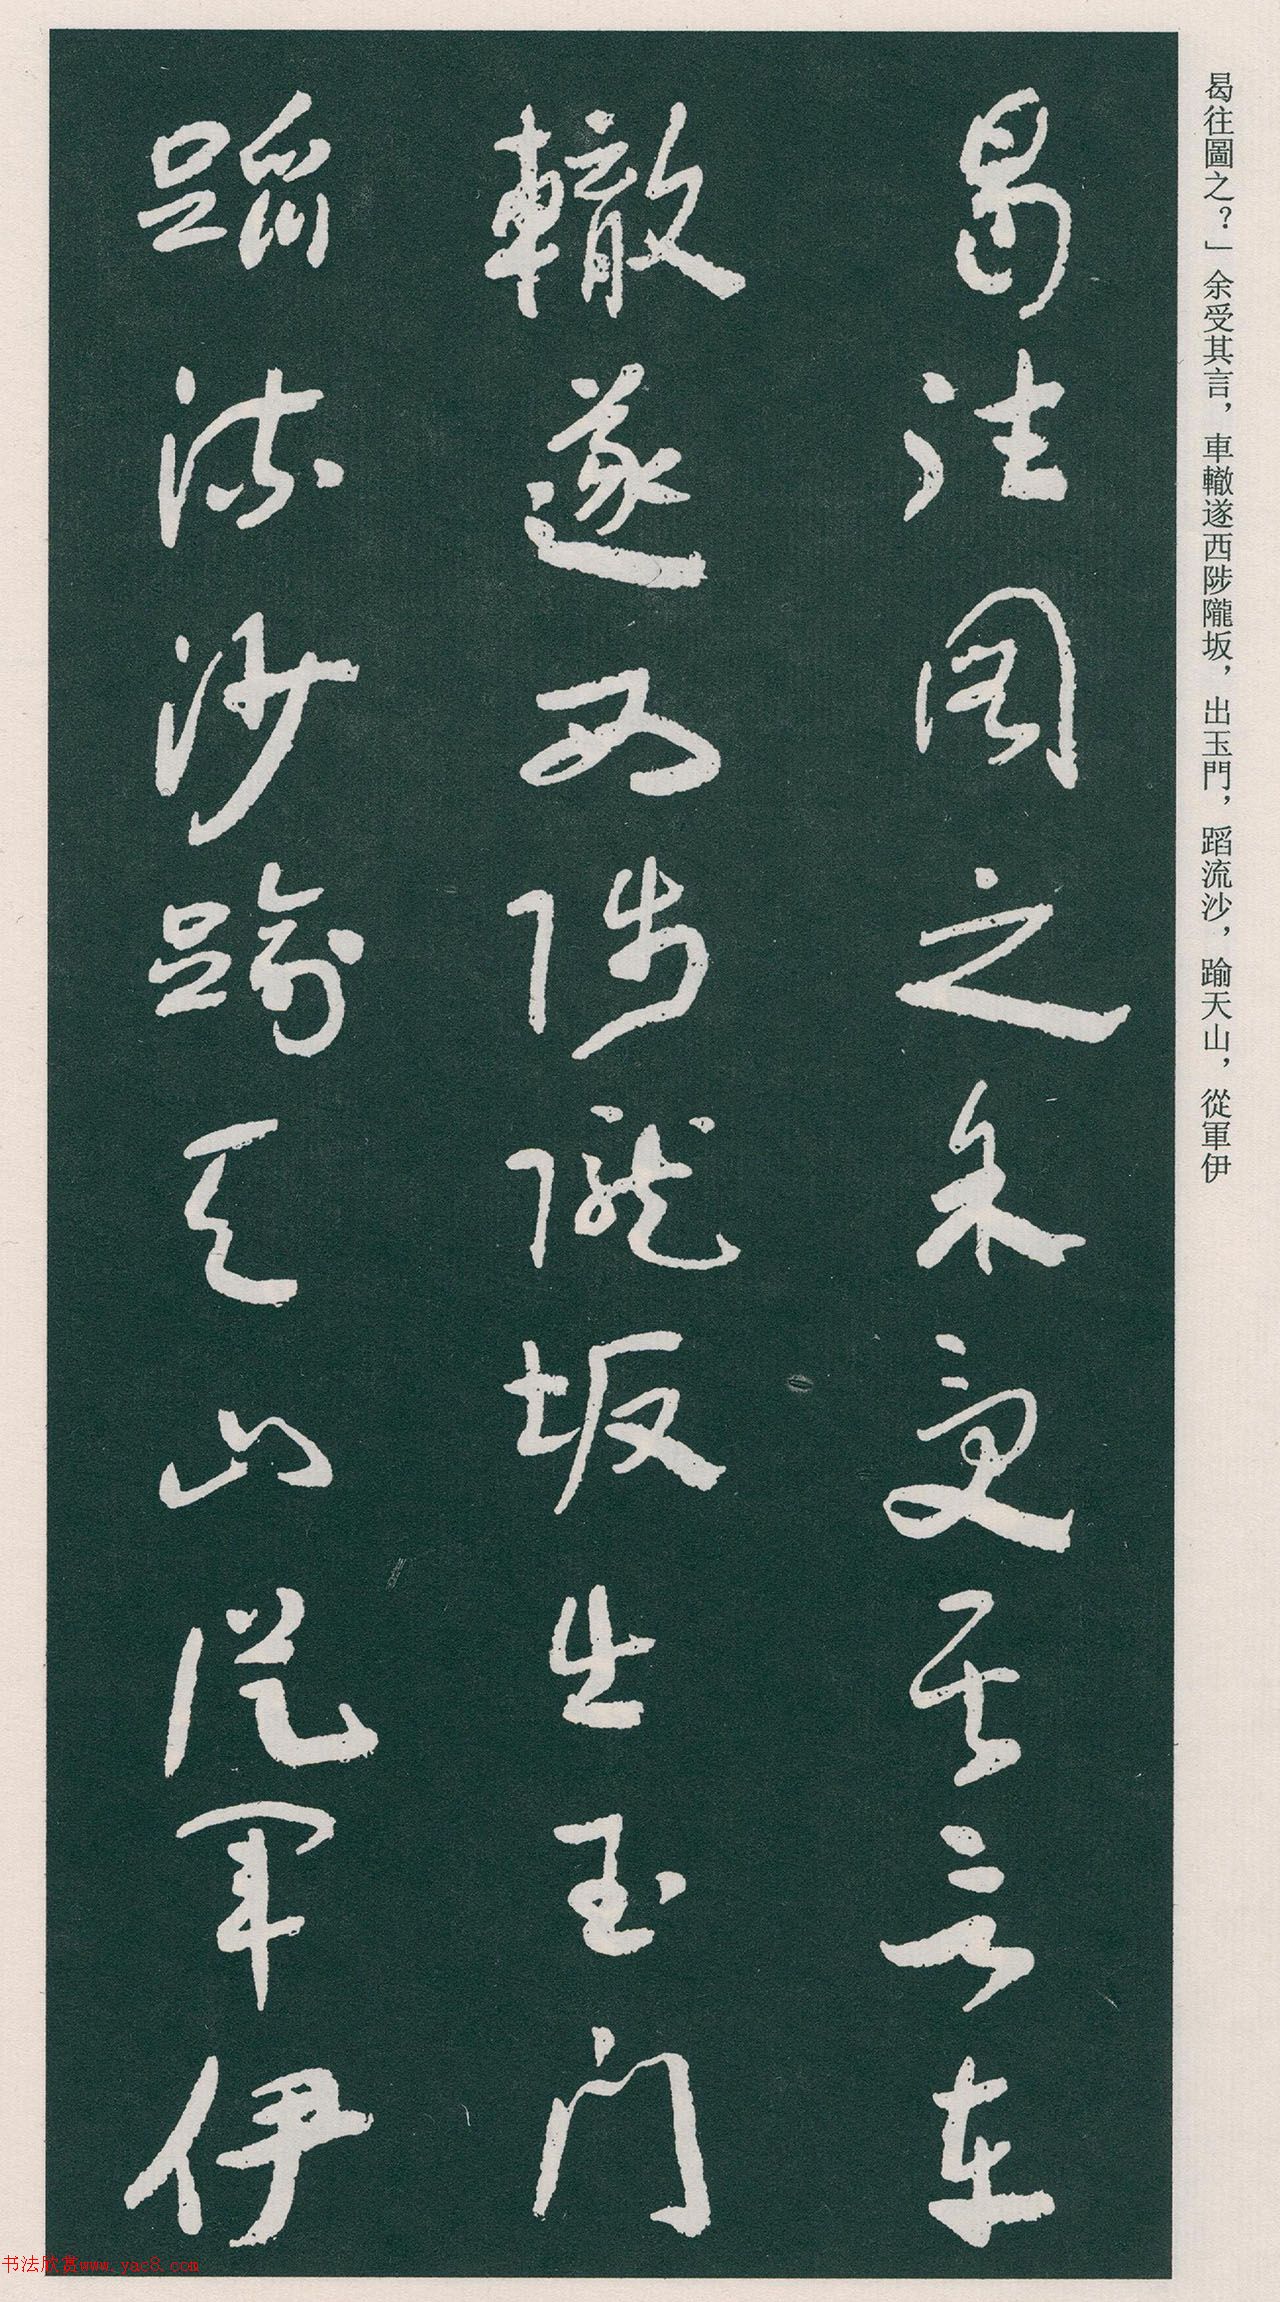 曷往圖之？」余受其言，車轍遂西陟隴坂，出玉門，蹈流沙，踰天山，從軍伊
曷往圖之余受其言車
轍遂西陟隴坂出玉門
蹈流沙踰天山從軍伊
书法欣赏www.yac8.com